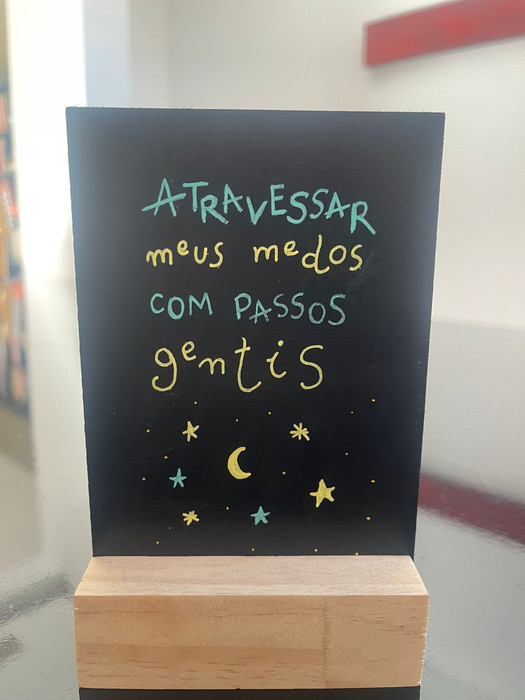 ATRAVESSAR
meus medos
COM PASSOS
gentis